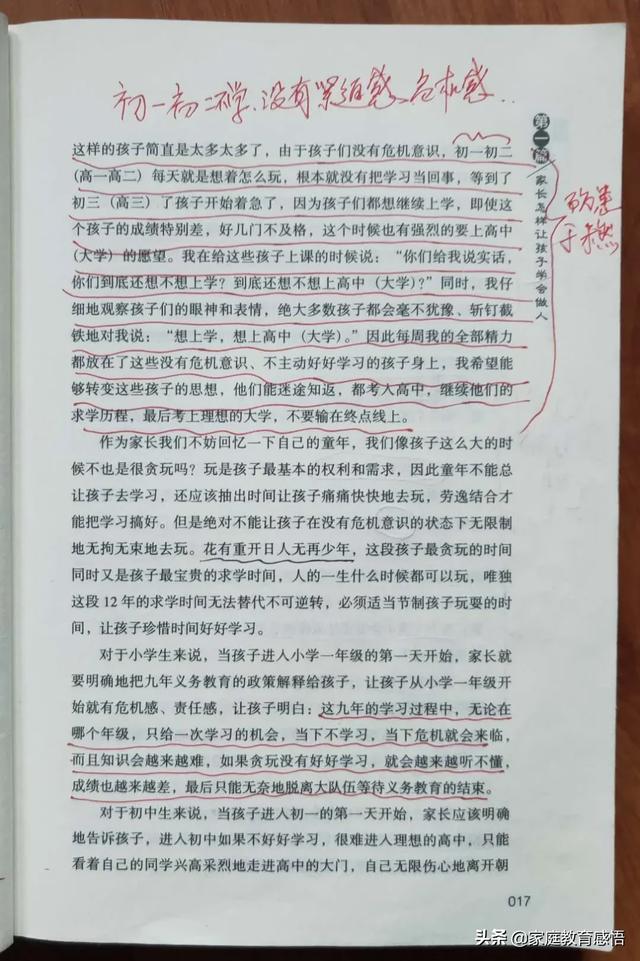 初一初二不学、没有紧迫感、危机感..
第一篇 家长怎样让孩子学会做人
防患
于未然
这样的孩子简直是太多太多了，由于孩子们没有危机意识，初一初二
（高一高二）每天就是想着怎么玩，根本就没有把学习当回事，等到了
初三（高三）了孩子开始着急了，因为孩子们都想继续上学，即使这
个孩子的成绩特别差，好几门不及格，这个时候也有强烈的要上高中
（大学）的愿望。我在给这些孩子上课的时候说：“你们给我说实话，
你们到底还想不想上学？到底还想不想上高中（大学）？”同时，我仔
细地观察孩子们的眼神和表情，绝大多数孩子都会毫不犹豫、斩钉截
铁地对我说：“想上学，想上高中（大学）。”因此每周我的全部精力
都放在了这些没有危机意识、不主动好好学习的孩子身上，我希望能
够转变这些孩子的思想，他们能迷途知返，都考入高中，继续他们的
求学历程，最后考上理想的大学，不要输在终点线上。
作为家长我们不妨回忆一下自己的童年，我们像孩子这么大的时
候不也是很贪玩吗？玩是孩子最基本的权利和需求，因此童年不能总
让孩子去学习，还应该抽出时间让孩子痛痛快快地去玩，劳逸结合才
能把学习搞好。但是绝对不能让孩子在没有危机意识的状态下无限制
地无拘无束地去玩。花有重开日人无再少年，这段孩子最贪玩的时间
同时又是孩子最宝贵的求学时间，人的一生什么时候都可以玩，唯独
这段 12 年的求学时间无法替代不可逆转，必须适当节制孩子玩耍的时
间，让孩子珍惜时间好好学习。
对于小学生来说，当孩子进入小学一年级的第一天开始，家长就
要明确地把九年义务教育的政策解释给孩子，让孩子从小学一年级开
始就有危机感、责任感，让孩子明白：这九年的学习过程中，无论在
哪个年级，只给一次学习的机会，当下不学习，当下危机就会来临，
而且知识会越来越难，如果贪玩没有好好学习，就会越来越听不懂，
成绩也越来越差，最后只能无奈地脱离大队伍等待义务教育的结束。
对于初中生来说，当孩子进入初一的第一天开始，家长应该明确
地告诉孩子，进入初中如果不好好学习，很难进入理想的高中，只能
看着自己的同学兴高采烈地走进高中的大门，自己无限伤心地离开朝
017
头条 @家庭教育感悟